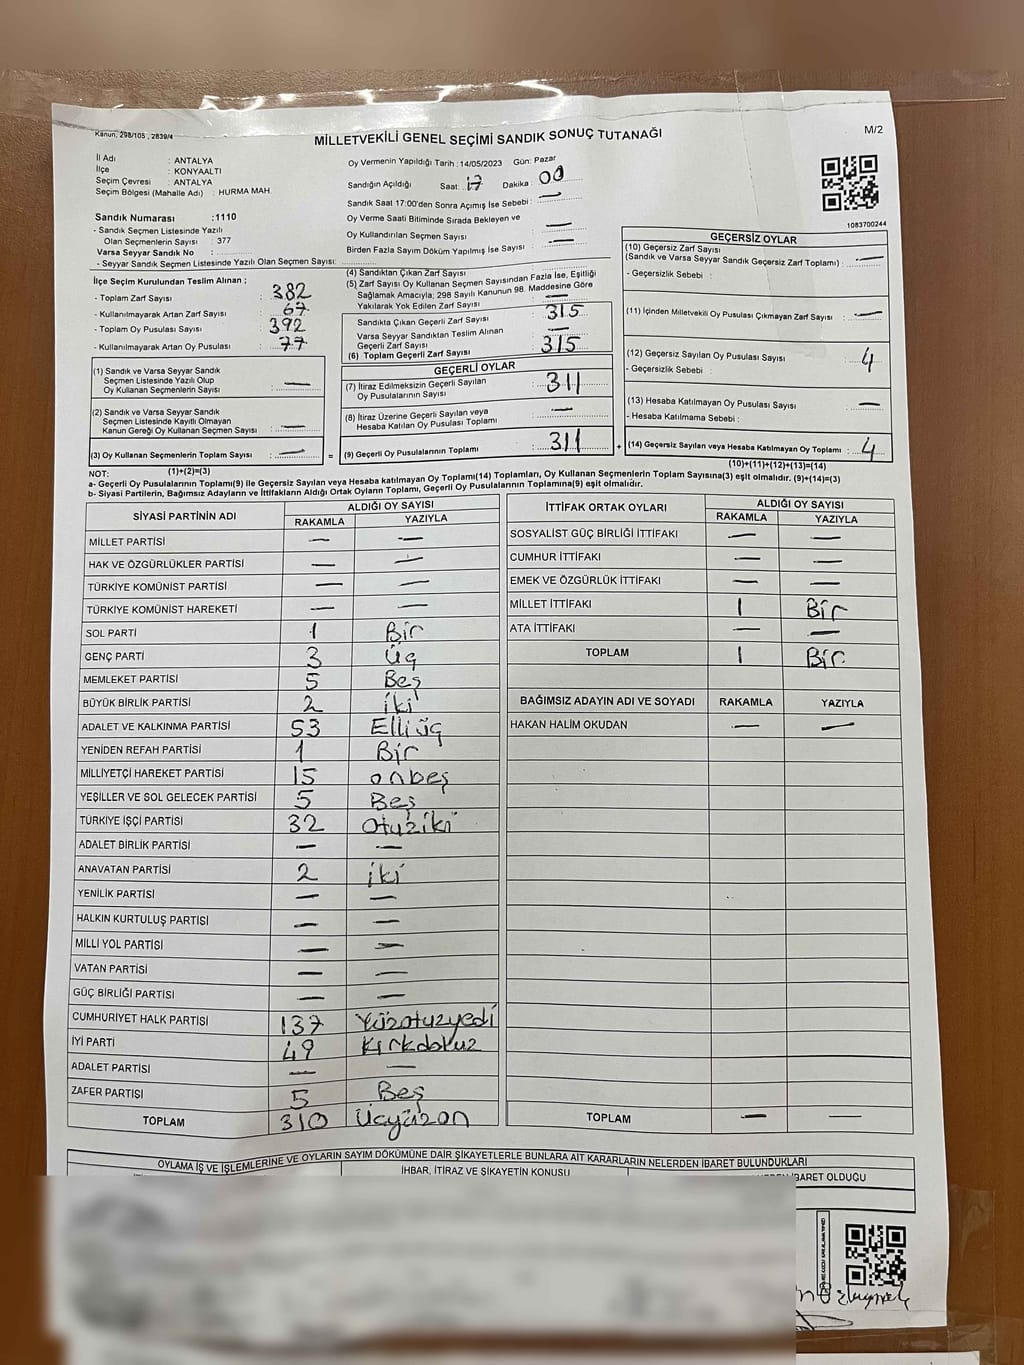 Kanun, 298/105 , 2839/4
MİLLETVEKİLİ GENEL SEÇİMİ SANDIK SONUÇ TUTANAĞI
M/2
İl Adı : ANTALYA
İlçe : KONYAALTI
Seçim Çevresi : ANTALYA
Seçim Bölgesi (Mahalle Adı) : HURMA MAH.
Oy Vermenin Yapıldığı Tarih : 14/05/2023 Gün: Pazar
Sandığın Açıldığı Saat: 17 Dakika : 00
Sandık Saat 17:00'den Sonra Açımış İse Sebebi : —
Oy Verme Saati Bitiminde Sırada Bekleyen ve
Oy Kullandırılan Seçmen Sayısı : —
Birden Fazla Sayım Döküm Yapılmış İse Sayısı : —
1083700244
Sandık Numarası :1110
- Sandık Seçmen Listesinde Yazılı
Olan Seçmenlerin Sayısı : 377
Varsa Seyyar Sandık No :
- Seyyar Sandık Seçmen Listesinde Yazılı Olan Seçmen Sayısı:
İlçe Seçim Kurulundan Teslim Alınan ;
- Toplam Zarf Sayısı : 382
- Kullanılmayarak Artan Zarf Sayısı : 67
- Toplam Oy Pusulası Sayısı : 392
- Kullanılmayarak Artan Oy Pusulası : 77
(1) Sandık ve Varsa Seyyar Sandık
Seçmen Listesinde Yazılı Olup
Oy Kullanan Seçmenlerin Sayısı : —
(2) Sandık ve Varsa Seyyar Sandık
Seçmen Listesinde Kayıtlı Olmayan
Kanun Gereği Oy Kullanan Seçmen Sayısı : —
(3) Oy Kullanan Seçmenlerin Toplam Sayısı : — =
(4) Sandıktan Çıkan Zarf Sayısı :
(5) Zarf Sayısı Oy Kullanan Seçmen Sayısından Fazla İse, Eşitliği
Sağlamak Amacıyla; 298 Sayılı Kanunun 98. Maddesine Göre
Yakılarak Yok Edilen Zarf Sayısı :
Sandıkta Çıkan Geçerli Zarf Sayısı : 315
Varsa Seyyar Sandıktan Teslim Alınan
Geçerli Zarf Sayısı : —
(6) Toplam Geçerli Zarf Sayısı : 315
GEÇERLİ OYLAR
(7) İtiraz Edilmeksizin Geçerli Sayılan
Oy Pusulalarının Sayısı : 311
(8) İtiraz Üzerine Geçerli Sayılan veya
Hesaba Katılan Oy Pusulası Toplamı : —
(9) Geçerli Oy Pusulalarının Toplamı : 311 +
GEÇERSİZ OYLAR
(10) Geçersiz Zarf Sayısı
(Sandık ve Varsa Seyyar Sandık Geçersiz Zarf Toplamı) : —
- Geçersizlik Sebebi :
(11) İçinden Milletvekili Oy Pusulası Çıkmayan Zarf Sayısı : —
(12) Geçersiz Sayılan Oy Pusulası Sayısı : 4
- Geçersizlik Sebebi :
(13) Hesaba Katılmayan Oy Pusulası Sayısı : —
- Hesaba Katılmama Sebebi :
(14) Geçersiz Sayılan veya Hesaba Katılmayan Oy Toplamı : 4
NOT: (1)+(2)=(3)
(10)+(11)+(12)+(13)=(14)
a- Geçerli Oy Pusulalarının Toplamı(9) ile Geçersiz Sayılan veya Hesaba katılmayan Oy Toplamı(14) Toplamları, Oy Kullanan Seçmenlerin Toplam Sayısına(3) eşit olmalıdır. (9)+(14)=(3)
b- Siyasi Partilerin, Bağımsız Adayların ve İttifakların Aldığı Ortak Oyların Toplamı, Geçerli Oy Pusulalarının Toplamına(9) eşit olmalıdır.
SİYASİ PARTİNİN ADI ALDIĞI OY SAYISI
RAKAMLA YAZIYLA
MİLLET PARTİSİ — —
HAK VE ÖZGÜRLÜKLER PARTİSİ — —
TÜRKİYE KOMÜNİST PARTİSİ — —
TÜRKİYE KOMÜNİST HAREKETİ — —
SOL PARTİ 1 Bir
GENÇ PARTİ 3 Üç
MEMLEKET PARTİSİ 5 Beş
BÜYÜK BİRLİK PARTİSİ 2 iki
ADALET VE KALKINMA PARTİSİ 53 Elli üç
YENİDEN REFAH PARTİSİ 1 Bir
MİLLİYETÇİ HAREKET PARTİSİ 15 onbeş
YEŞİLLER VE SOL GELECEK PARTİSİ 5 Beş
TÜRKİYE İŞÇİ PARTİSİ 32 Otuziki
ADALET BİRLİK PARTİSİ — —
ANAVATAN PARTİSİ 2 iki
YENİLİK PARTİSİ — —
HALKIN KURTULUŞ PARTİSİ — —
MİLLİ YOL PARTİSİ — —
VATAN PARTİSİ — —
GÜÇ BİRLİĞİ PARTİSİ — —
CUMHURİYET HALK PARTİSİ 137 Yüzotuzyedi
İYİ PARTİ 49 Kırkdokuz
ADALET PARTİSİ — —
ZAFER PARTİSİ 5 Beş
TOPLAM 310 Üçyüzon
İTTİFAK ORTAK OYLARI ALDIĞI OY SAYISI
RAKAMLA YAZIYLA
SOSYALİST GÜÇ BİRLİĞİ İTTİFAKI — —
CUMHUR İTTİFAKI — —
EMEK VE ÖZGÜRLÜK İTTİFAKI — —
MİLLET İTTİFAKI 1 Bir
ATA İTTİFAKI — —
TOPLAM 1 Bir
BAĞIMSIZ ADAYIN ADI VE SOYADI RAKAMLA YAZIYLA
HAKAN HALİM OKUDAN — —
TOPLAM — —
OYLAMA İŞ VE İŞLEMLERİNE VE OYLARIN SAYIM DÖKÜMÜNE DAİR ŞİKAYETLERLE BUNLARA AİT KARARLARIN NELERDEN İBARET BULUNDUKLARI
İHBAR, İTİRAZ VE ŞİKAYETİN KONUSU
İBARET OLDUĞU